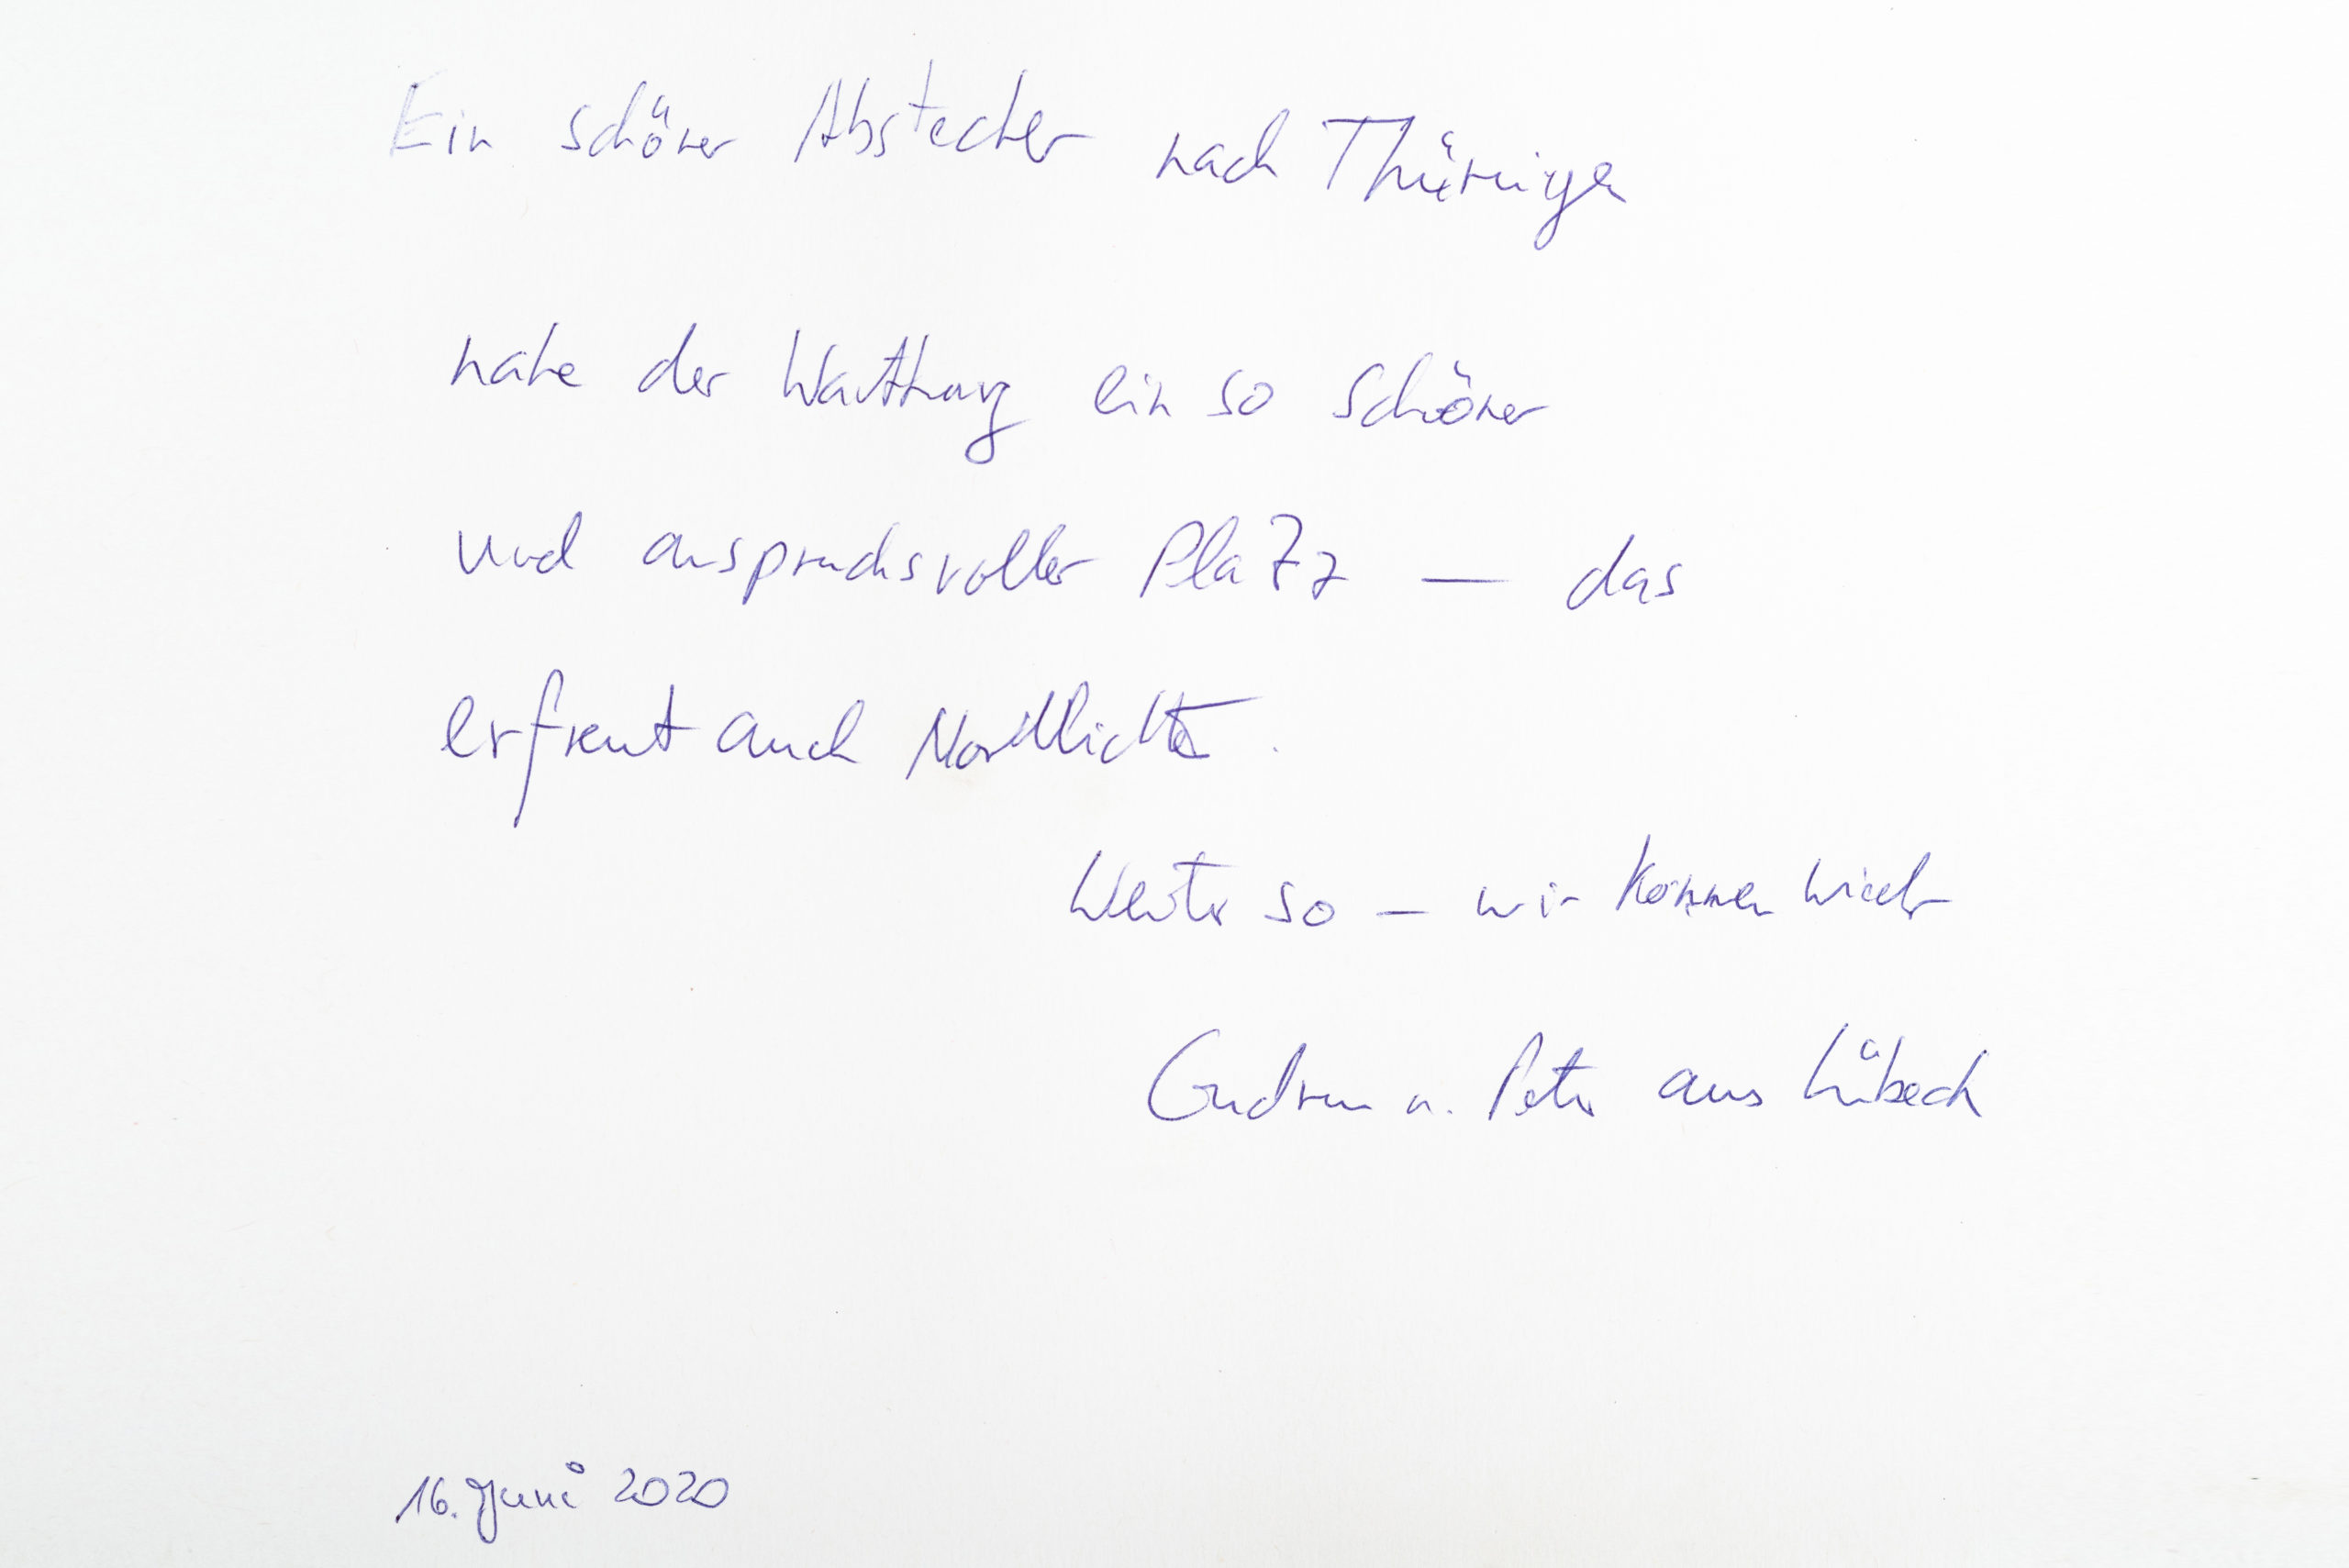 Ein schöner Abstecher nach Thüringen
nahe der Wartburg ein so schöner
und anspruchsvoller Platz — das
erfreut auch Nordlichter.
Weiter so – wir kommen wieder
Gudrun u. Peter aus Lübeck
16. Juni 2020